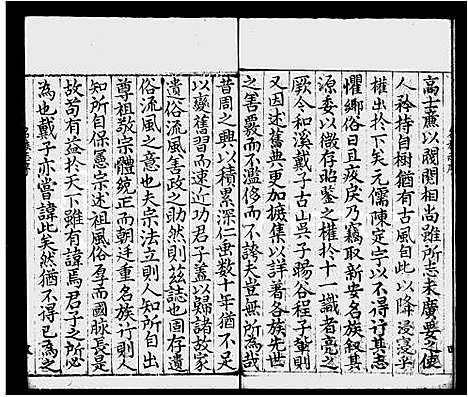 高士廉以閥閱相尚雖所志未廣要之使
人矜持自樹猶有古風自此以降浸寖乎
權出於下矣元儒陳定宇以不得行其志
懼鄉俗日且疲戾乃竊取新安名族叙其
源委以微存昭鍳之權於十一識者亮之
厥令和溪戴子古山吳子暘谷程子輩則
又因述舊典更加摭集以詳著各族先世
之善覈而不濫侈而不誇夫豈無所為哉
昔周之興以積累深仁毋數十年猶不足
以變舊習而速近功君子蓋以歸諸故家
遺俗流風善政之助然則茲誌也固存遺
俗流風之意也夫宗法立則人知所自出
尊祖敬宗體統正而朝廷重名族行則人
知所自保憲宗述祖風俗盈而國脉長是
故苟有益於天下雖有諱焉君子之所必
為也戴子亦嘗諱此矣然猶不得已為之